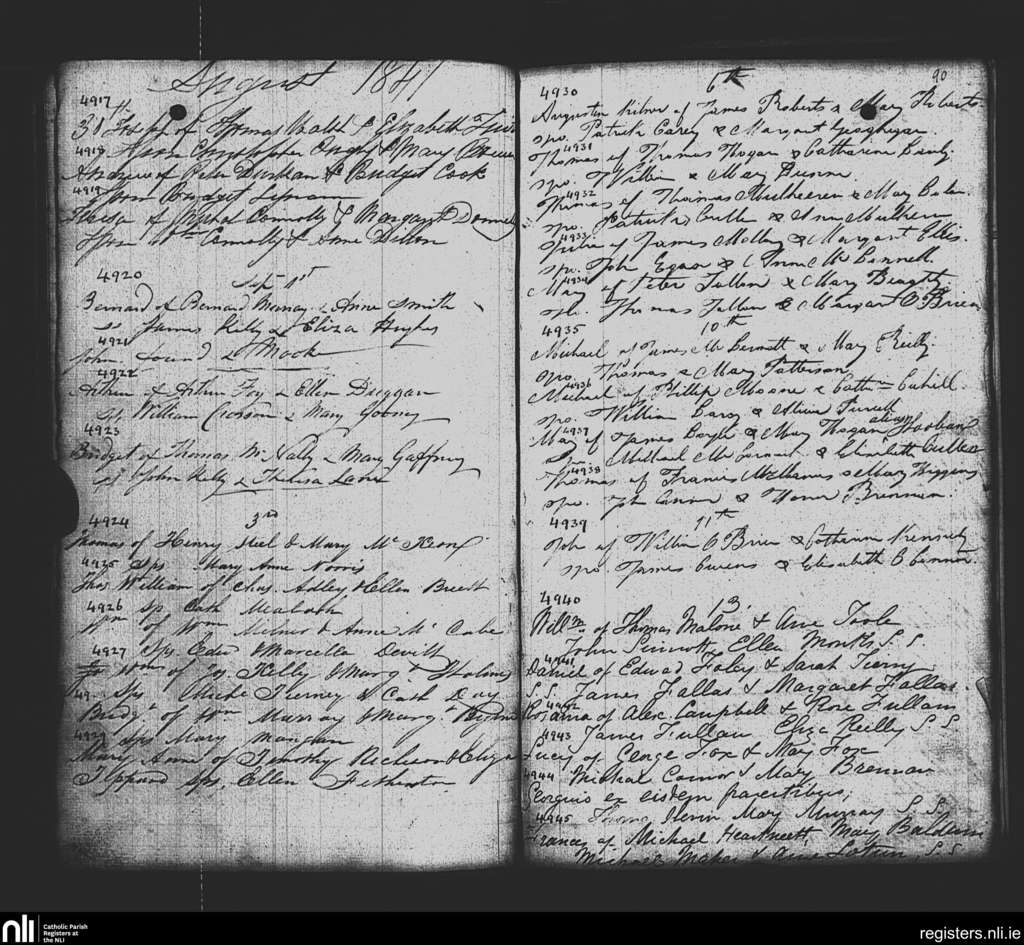 August 1841
4917
31 Joseph of Thomas Walsh & Elizabeth
4918 Spon Christopher & Mary
Andrew of Peter Durkan & Bridget Cook
4919 Spon Bridget
Theresa of Michol Connolly & Margaret Donnelly
Spon Wm Connolly & Anne Dillon
4920
Sep 1st
Bernard of Bernard Murray & Anne Smith
ss James Kelly & Eliza Hughes
4921
John found do Moore
4922
Arthur of Arthur Foy & Ellen Duggan
ss William Crosson & Mary Gooney
4923
Bridget of Thomas McNally & Mary Gaffney
ss John Kelly & Theresa Lane
4924 3rd
Thomas of Henry Neel & Mary Mc Keon
4925 Sps Mary Anne Norris
Thos William of Chas. Adley & Ellen
4926 Sp. Cath
Wm of Wm Milner & Anne Mc Cabe
4927 Sps Edw Marcella Devitt
Wm of Jos. Kelly & Marg.t Holmes
49 Sps Tierney & Cath Kay
Bridg.t of Wm Murray & Marg.t Byrne
4929 Sps Mary Mangan
Mary Anne of Timothy & Eliza
Sheppard Sps. Ellen
90
4930 6th
Augustin of James Roberts & Mary Roberts
spo. Patrick Carey & Margaret Geoghegan
4931
Thomas of Thomas Hogan & Catharine
spo. William & Mary Dunne
4932
Thomas of Thomas Mulheeren & Mary
spo. Patrick Cullen & Anne Mulkern
4933
of James Molloy & Margaret Ellis.
sp. John Egan & Anne McConnell
4934
Mary of Peter Fullam & Mary
sp. Thomas Fullam & Margaret O'Brien
4935 10th
Michael of James McDermott & Mary Reilly.
spo. Thomas & Mary Patterson
4936
Michael of Phillip Moore & Cath Cahill
spo. William Carey & Purcell
4937
Mary of James Boyle & Mary Hogan alias Hoolan
spo. Michael & Elizabeth Cullen
4938
Thomas of Francis McManus & Mary Higgins
spo. John Connor & Honor Brennan
4939 11th
John of William O'Brien & Catharine Kennedy
spo. James & Elisabeth O'Connor
4940 13
Willm of Thomas Malone & Ane Toole
John Sinnott Ellen Monks S. S.
4941
Daniel of Edward Foley & Sarah Tierny
S. S. James Fallas & Margaret Fallas.
4942
Rosanna of Alex. Campbell & Rose Fullam
4943 James Fullam Eliza Reilly S S
Lucy of George Fox & Mary Fox
4944 Michael Connor & Mary Brennan
Georgius ex eisdem parentibus;
4945 Thomas Mary Murray S. S.
Frances of Michael Mary Baldwin
Michael Maher & Ane S. S
nli
Catholic Parish
Registers at
the NLI
registers.nli.ie